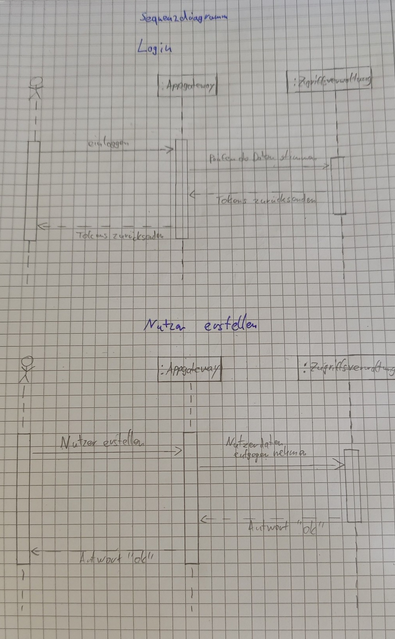 Sequenzdiagramm
Login
:Appgateway
:Zugriffsverwaltung
einloggen
Prüfen ob Daten stimmen
Tokens zurücksenden
Tokens zurücksenden
Nutzer erstellen
:Appgateway
:Zugriffsverwaltung
Nutzer erstellen
Nutzerdaten
entgegen nehmen
Antwort "ok"
Antwort "ok"